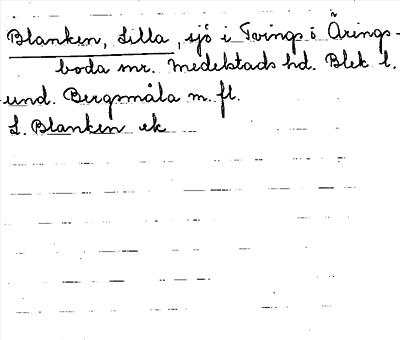 Blanken, Lilla, sjö i Tvings o Ärings-
boda snr. Medelstads hd. Blek l.
und. Bergsmåla m. fl.
L. Blanken ek